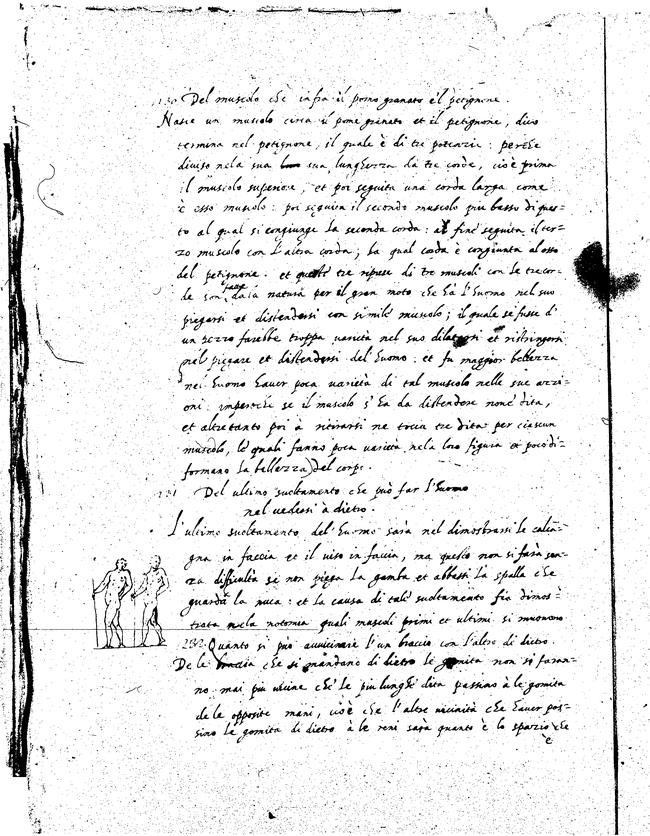 230 Del muscolo ch'è infra il pomo granato e'l petignone.
Nasce un muscolo circa il pomo granato et il petignone, dico
termina nel petignone, il quale è di tre potenzie: perche
diviso nela sua sua lunghezza da tre corde, cioè prima
il muscolo superiore, et poi seguita una corda larga come
è esso muscolo: poi seguita il secondo muscolo piu basso di ques-
to al qual si congiunge la seconda corda: al fine seguita il ter-
zo muscolo con l'altra corda; la qual corda è congiunta al osso
del petignone. et queste tre riprese di tre muscoli con le tre cor-
de son fatte dala natura per il gran moto che hà l'huomo nel suo
piegarsi et distendersi con simile muscolo; il quale se fusse d'
un pezzo farebbe troppa varietà nel suo dilatarsi et ristringersi
nel piegare et distendersi del huomo: et fa maggior bellezza
nei huomo haver poca varietà di tal muscolo nelle sue azzi-
oni imperoche se il muscolo s'ha da distendere nove dita,
et altretanto poi à ritirarsi ne tocca tre dita per ciascun
muscolo, le quali fanno poca varietà nela loro figura et poco di-
formano la bellezza del corpo.
231 Del ultimo svoltamento che può far l'huomo
nel vedersi à dietro.
L'ultimo svoltamento del huomo sarà nel dimostrarsi le calca-
gna in faccia et il viso in faccia, ma questo non si farà sen-
za difficultà se non piega la gamba et abbassi la spalla che
guarda la nuca: et la causa di tale svoltamento fia dimos-
trata nela notomia quali muscoli primi et ultimi si muovono
232. Quanto si può avvicinare l'un braccio con l'altro di dietro.
De le braccia che si mandano di dietro le gomita non si faran-
no mai piu vicine che le piu lunghe dita passino à le gomita
de le opposite mani, cioè che l'altre vicinità che haver pos-
sino le gomita di dietro à le reni sarà quanto è lo spazio che
è